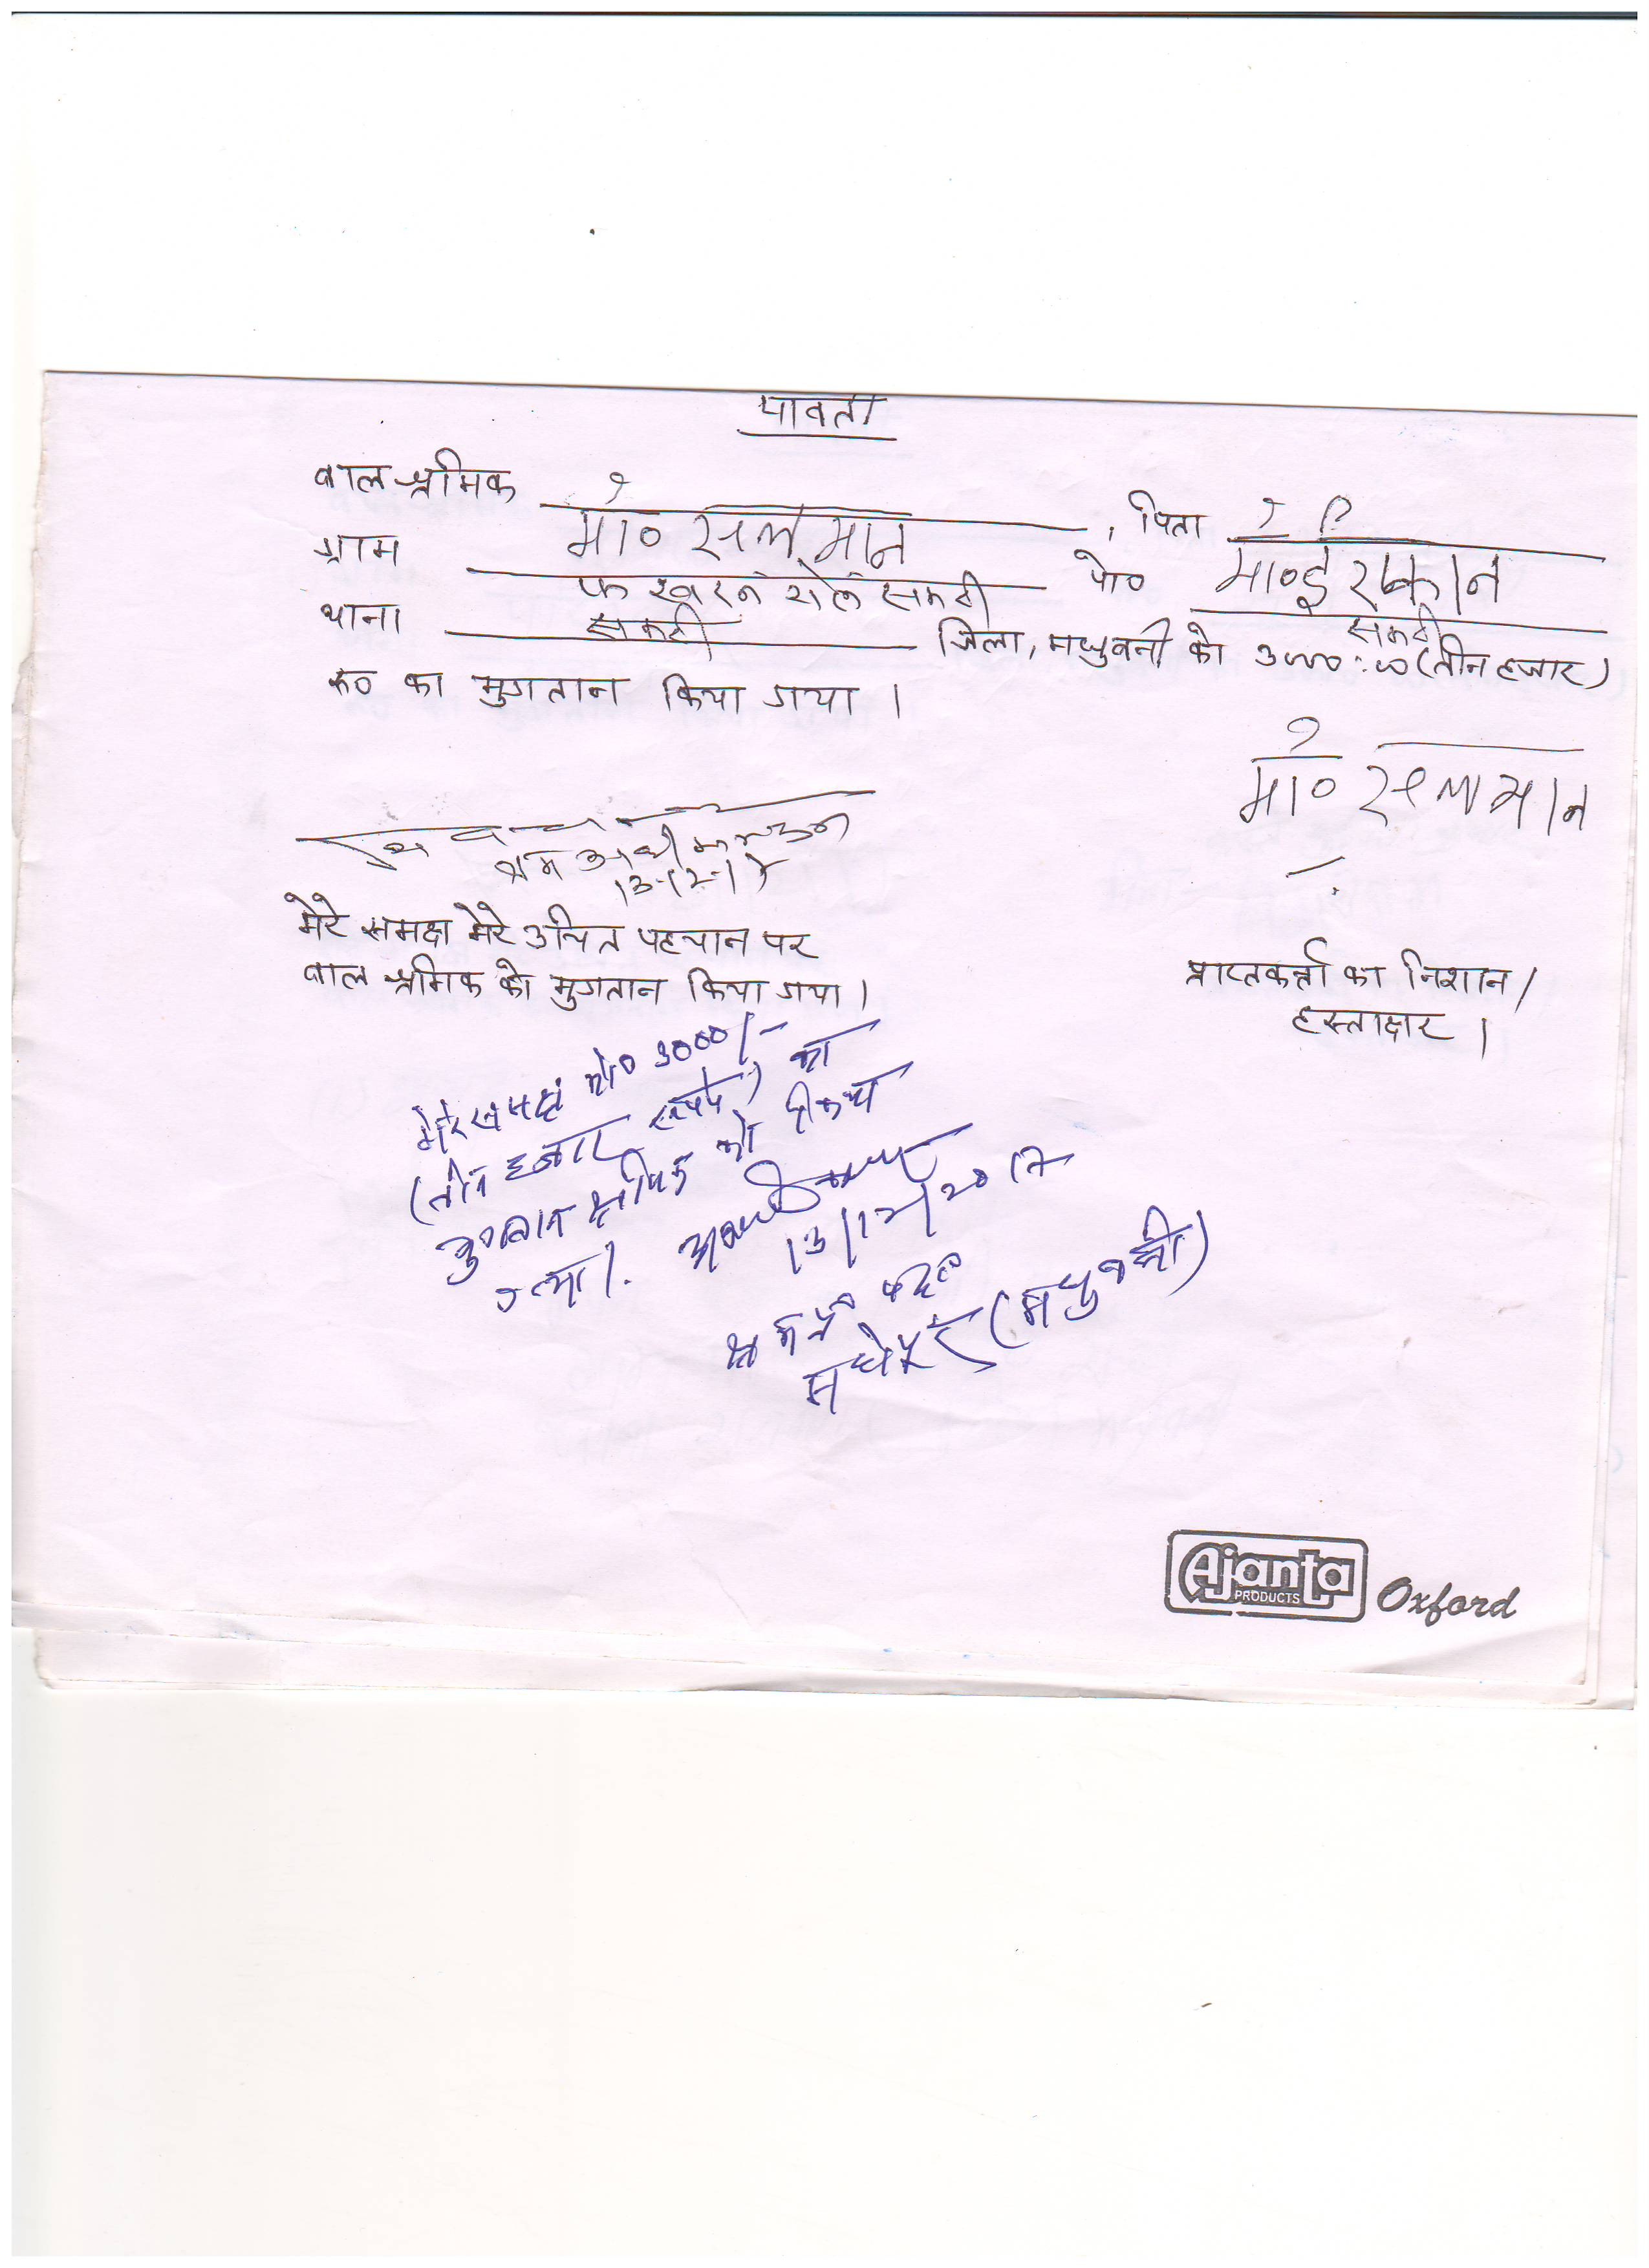 पावती
बाल श्रमिक मो० सलमान, पिता मो० ईरफान
ग्राम सकरी पो० सकरी
थाना सकरी जिला, मधुबनी को 3000:00 (तीन हजार)
रू० का भुगतान किया गया ।
मो० सलमान
13-12-17
मेरे समक्ष मेरे उचित पहचान पर
बाल श्रमिक को भुगतान किया गया ।
प्राप्तकर्ता का निशान /
हस्ताक्षर ।
मेरे समक्ष मो० 3000/-
(तीन हजार रूपये) का
भुगतान श्रमिक को किया
गया ।
13/12/2017
मधेपुर (मधुबनी)
Ajanta
PRODUCTS
Oxford